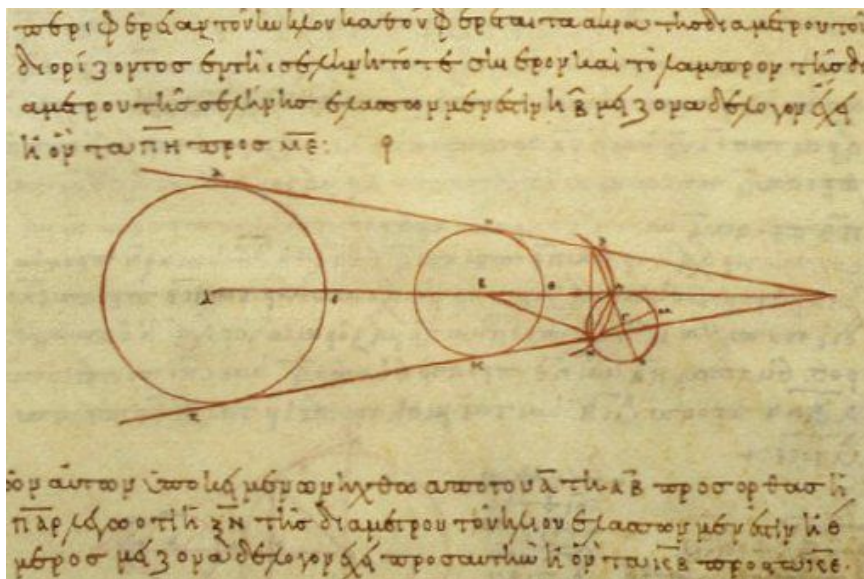 φέρεται τὰ ἄκρα τῆς διαμέτρου του
διορίζοντος ἐν τῆι σελήνηι τό τε σκιερὸν καὶ τὸ λαμπρὸν τῆς δι
αμέτρου τῆς σελήνης ἐλάσσων μέν ἐστιν ἢ β̅ μείζονα δὲ λόγον ἔχει
ἢ ὃν τὰ π̅η̅ πρὸς μ̅ε̅:
αὐτῶν ὑποκειμένων ἤχθω ἀπὸ τοῦ α̅ τῆι α̅β̅ πρὸς ὀρθὰς ἡ
π̅α̅ρ̅ λέγω ὅτι ἡ ξ̅ν̅ τῆς διαμέτρου τοῦ ἡλίου ἐλάσσων μέν ἐστιν ἢ θ
μέρος μείζονα δὲ λόγον ἔχει πρὸς αὐτὴν ἢ ὃν τὰ κ̅β̅ πρὸς